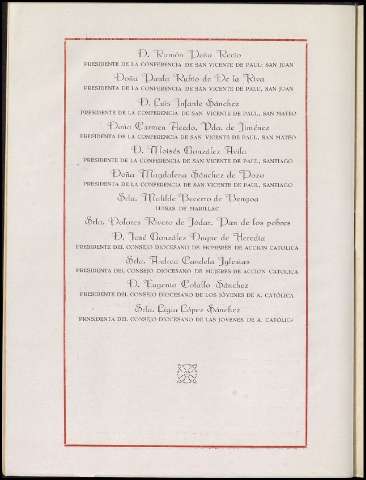 D. Ramón Peña Recio
PRESIDENTE DE LA CONFERENCIA DE SAN VICENTE DE PAUL, SAN JUAN
Doña Paula Rubio de De la Riva
PRESIDENTA DE LA CONFERENCIA DE SAN VICENTE DE PAUL, SAN JUAN
D. Luis Infante Sánchez
PRESIDENTE DE LA CONFERENCIA DE SAN VICENTE DE PAUL, SAN MATEO
Doña Carmen Acedo, Vda. de Jiménez
PRESIDENTA DE LA CONFERENCIA DE SAN VICENTE DE PAUL, SAN MATEO
D. Moisés González Avila
PRESIDENTE DE LA CONFERENCIA DE SAN VICENTE DE PAUL, SANTIAGO
Doña Magdalena Sánchez de Pozo
PRESIDENTA DE LA CONFERENCIA DE SAN VICENTE DE PAUL, SANTIAGO
Srta. Matilde Becerro de Bengoa
LUISAS DE MARILLAC
Srta. Dolores Rivero de Jódar, Pan de los pobres
D. José González Duque de Heredia
PRESIDENTE DEL CONSEJO DIOCESANO DE HOMBRES DE ACCION CATOLICA
Srta. Andrea Candela Iglesias
PRESIDENTA DEL CONSEJO DIOCESANO DE MUJERES DE ACCION CATOLICA
D. Eugenio Collallo Sánchez
PRESIDENTE DEL CONSEJO DIOCESANO DE LOS JÓVENES DE A. CATÓLICA
Srta. Ligia López Sánchez
PRESIDENTA DEL CONSEJO DIOCESANO DE LAS JÓVENES DE A. CATÓLICA